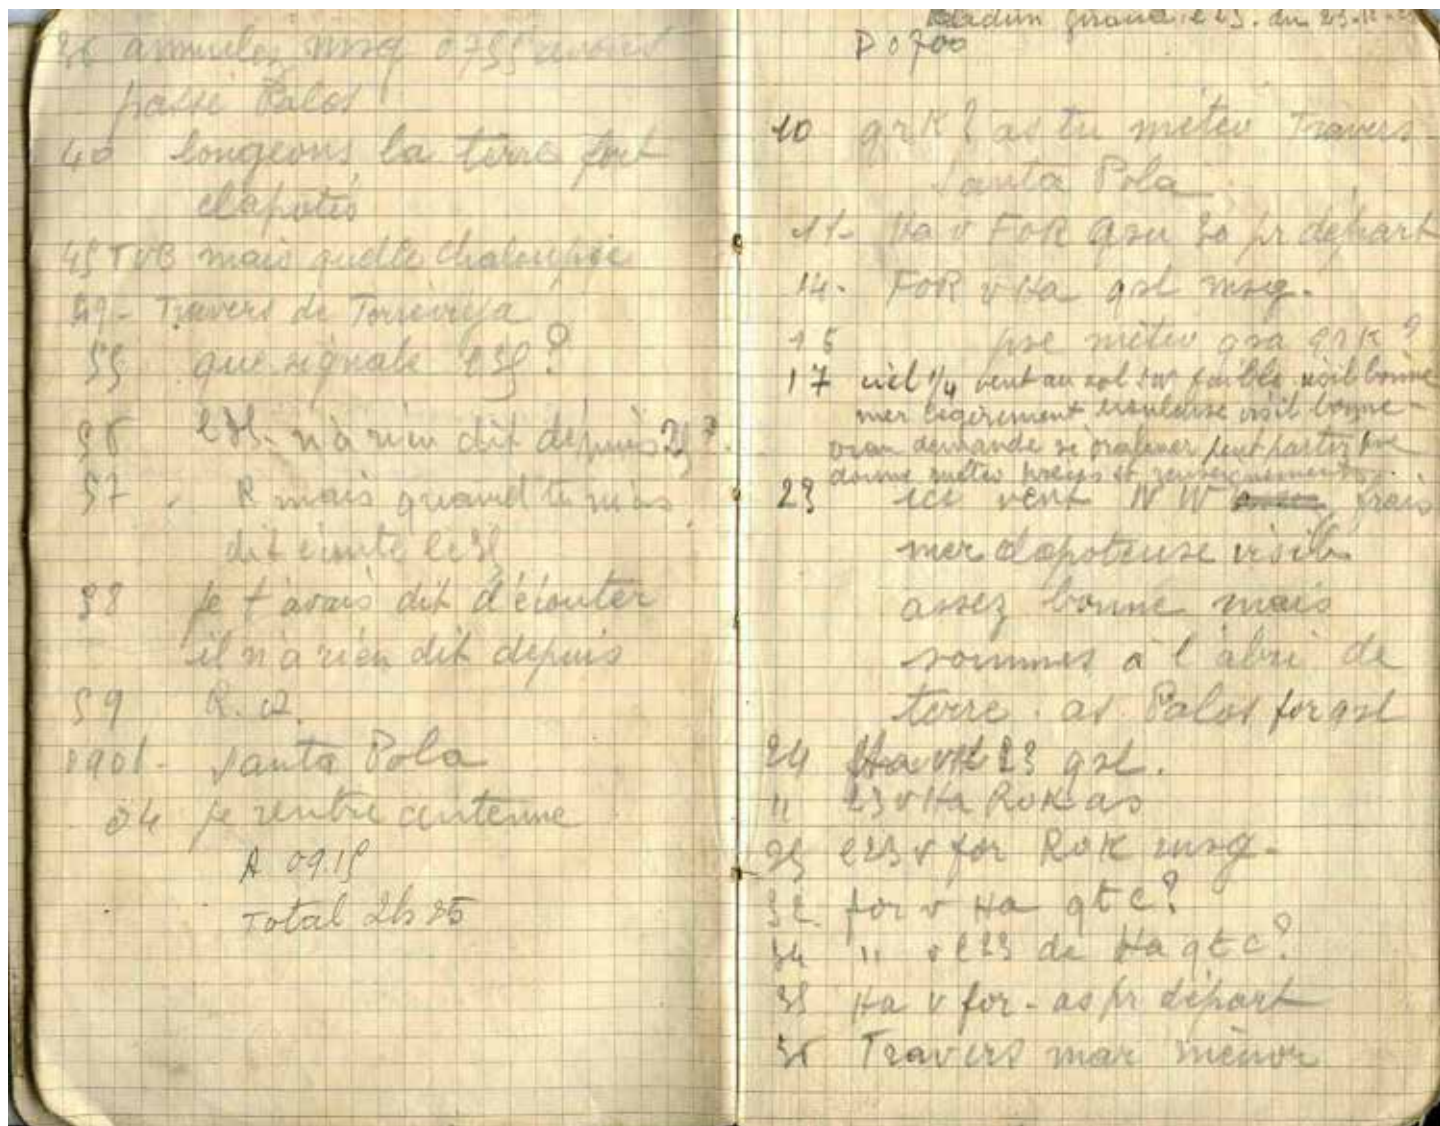 36 annulez msg 0755 avions
passé Palos
40 longeons la terre fort
clapotis
45 TVB mais quelle chaloupée
49 - Travers de Torrevieja
55 que signale E3S?
56 n'a rien dit depuis 25?
57 R mais quand tu m'as
dit écoute
58 je t'avais dit d'écouter
il n'a rien dit depuis
59 R.
0901 - Santa Pola
04 je rentre antenne
A 09.15
Total 2h
P 0700
10 qrk? as tu météo Travers
Santa Pola
11 - Ha v FOR qru 30 pr départ
14 - FOR v Ha qsl msg -
16 pse météo qsa qrk?
17 ciel 1/4 vent au sol SW faible visil bonne
mer légèrement visil bonne -
oran demande si peut partir
donne météo et renseignements
23 ici vent NW frais
mer clapoteuse visib
assez bonne mais
sommes à l'abri de
terre. as Palos for qsl
24 Ha v 23 qsl.
" E23 v Ha ROK as
25 E23 v for ROK msg -
32 for v Ha qtc?
34 " v E23 de Ha qtc?
35 Ha v for - as pr départ
36 Travers mar menor